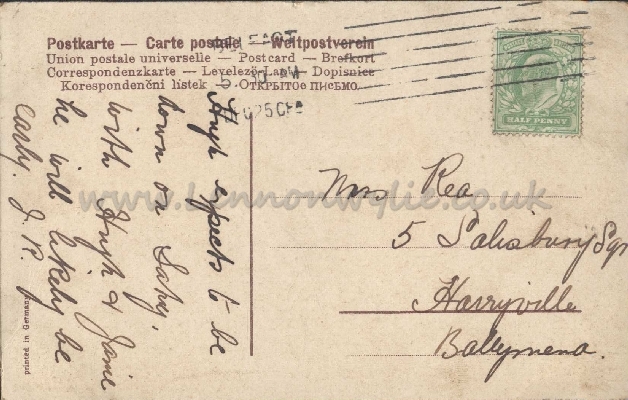 Postkarte — Carte postale — Weltpostverein
Union postale universelle — Postcard — Brefkort
Correspondenzkarte — Levelező-Lap — Dopisnice
Korespondenční lístek — ОТКРЫТОЕ ПИСЬМО.
HALF PENNY
expects to be
down on Satdy.
with Hugh & Janie
he will likely be
early. J. R.
Mrs Rea
5 Salisbury Sqr
Harryville
Ballymena.
printed in Germany
www.Lennonwylie.co.uk